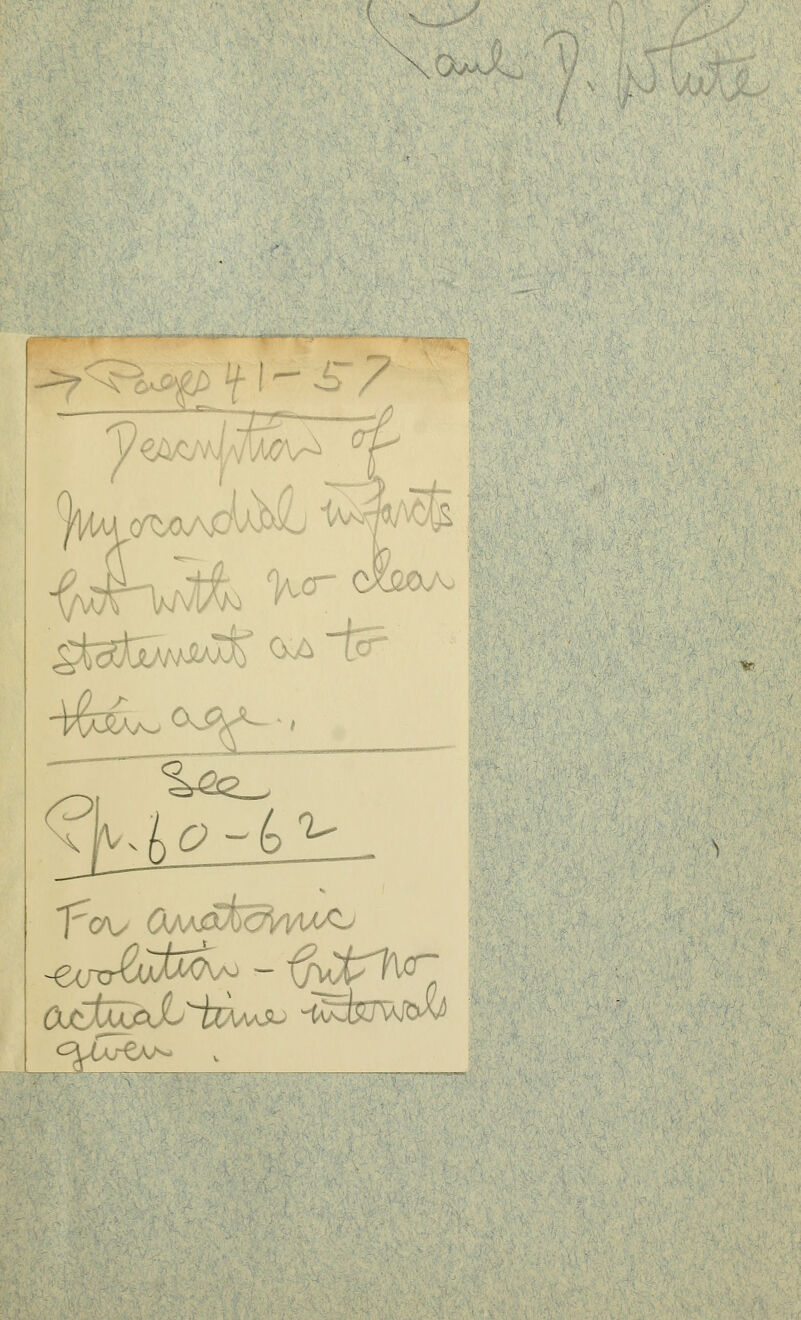 Paul D. White
→ Pages 41-57
Description of
myocardial infarcts
but with no clear
statement as to
their age.,
See
Pp. 60-62
For anatomic
evolution - but no
actual time intervals
given.